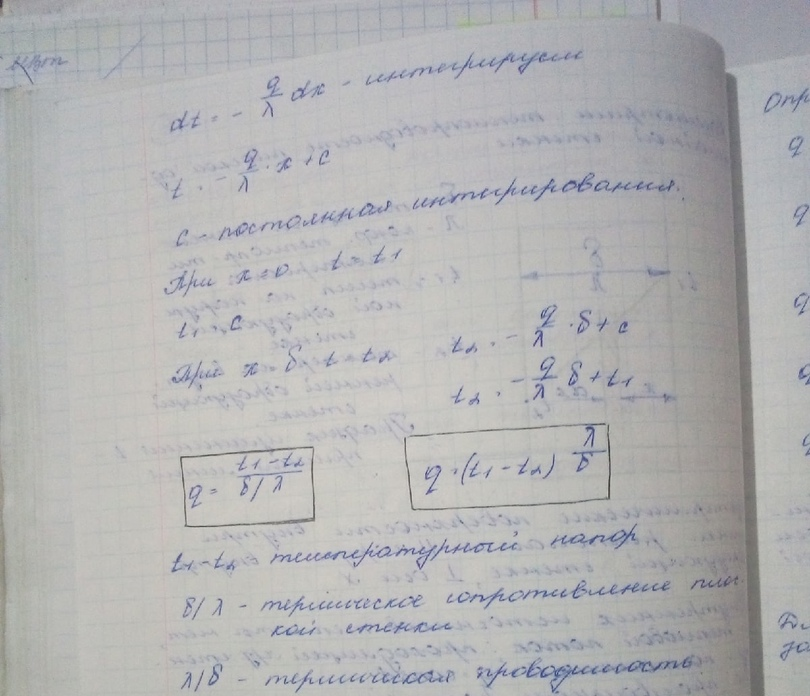 dt = - q/λ dx - интегрируем
t = - q/λ · x + c
c - постоянная интегрирования.
При x=0 t=t1
t1 = c
При x=δ t=t2 t2 = - q/λ · δ + c
t2 = - q/λ δ + t1
q = t1-t2 / δ/λ q = (t1-t2) λ/δ
t1-t2 температурный напор
δ/λ - термическое сопротивление плос-
кой стенки
λ/δ - термическая проводимость
Опр
q
q
q
q
q